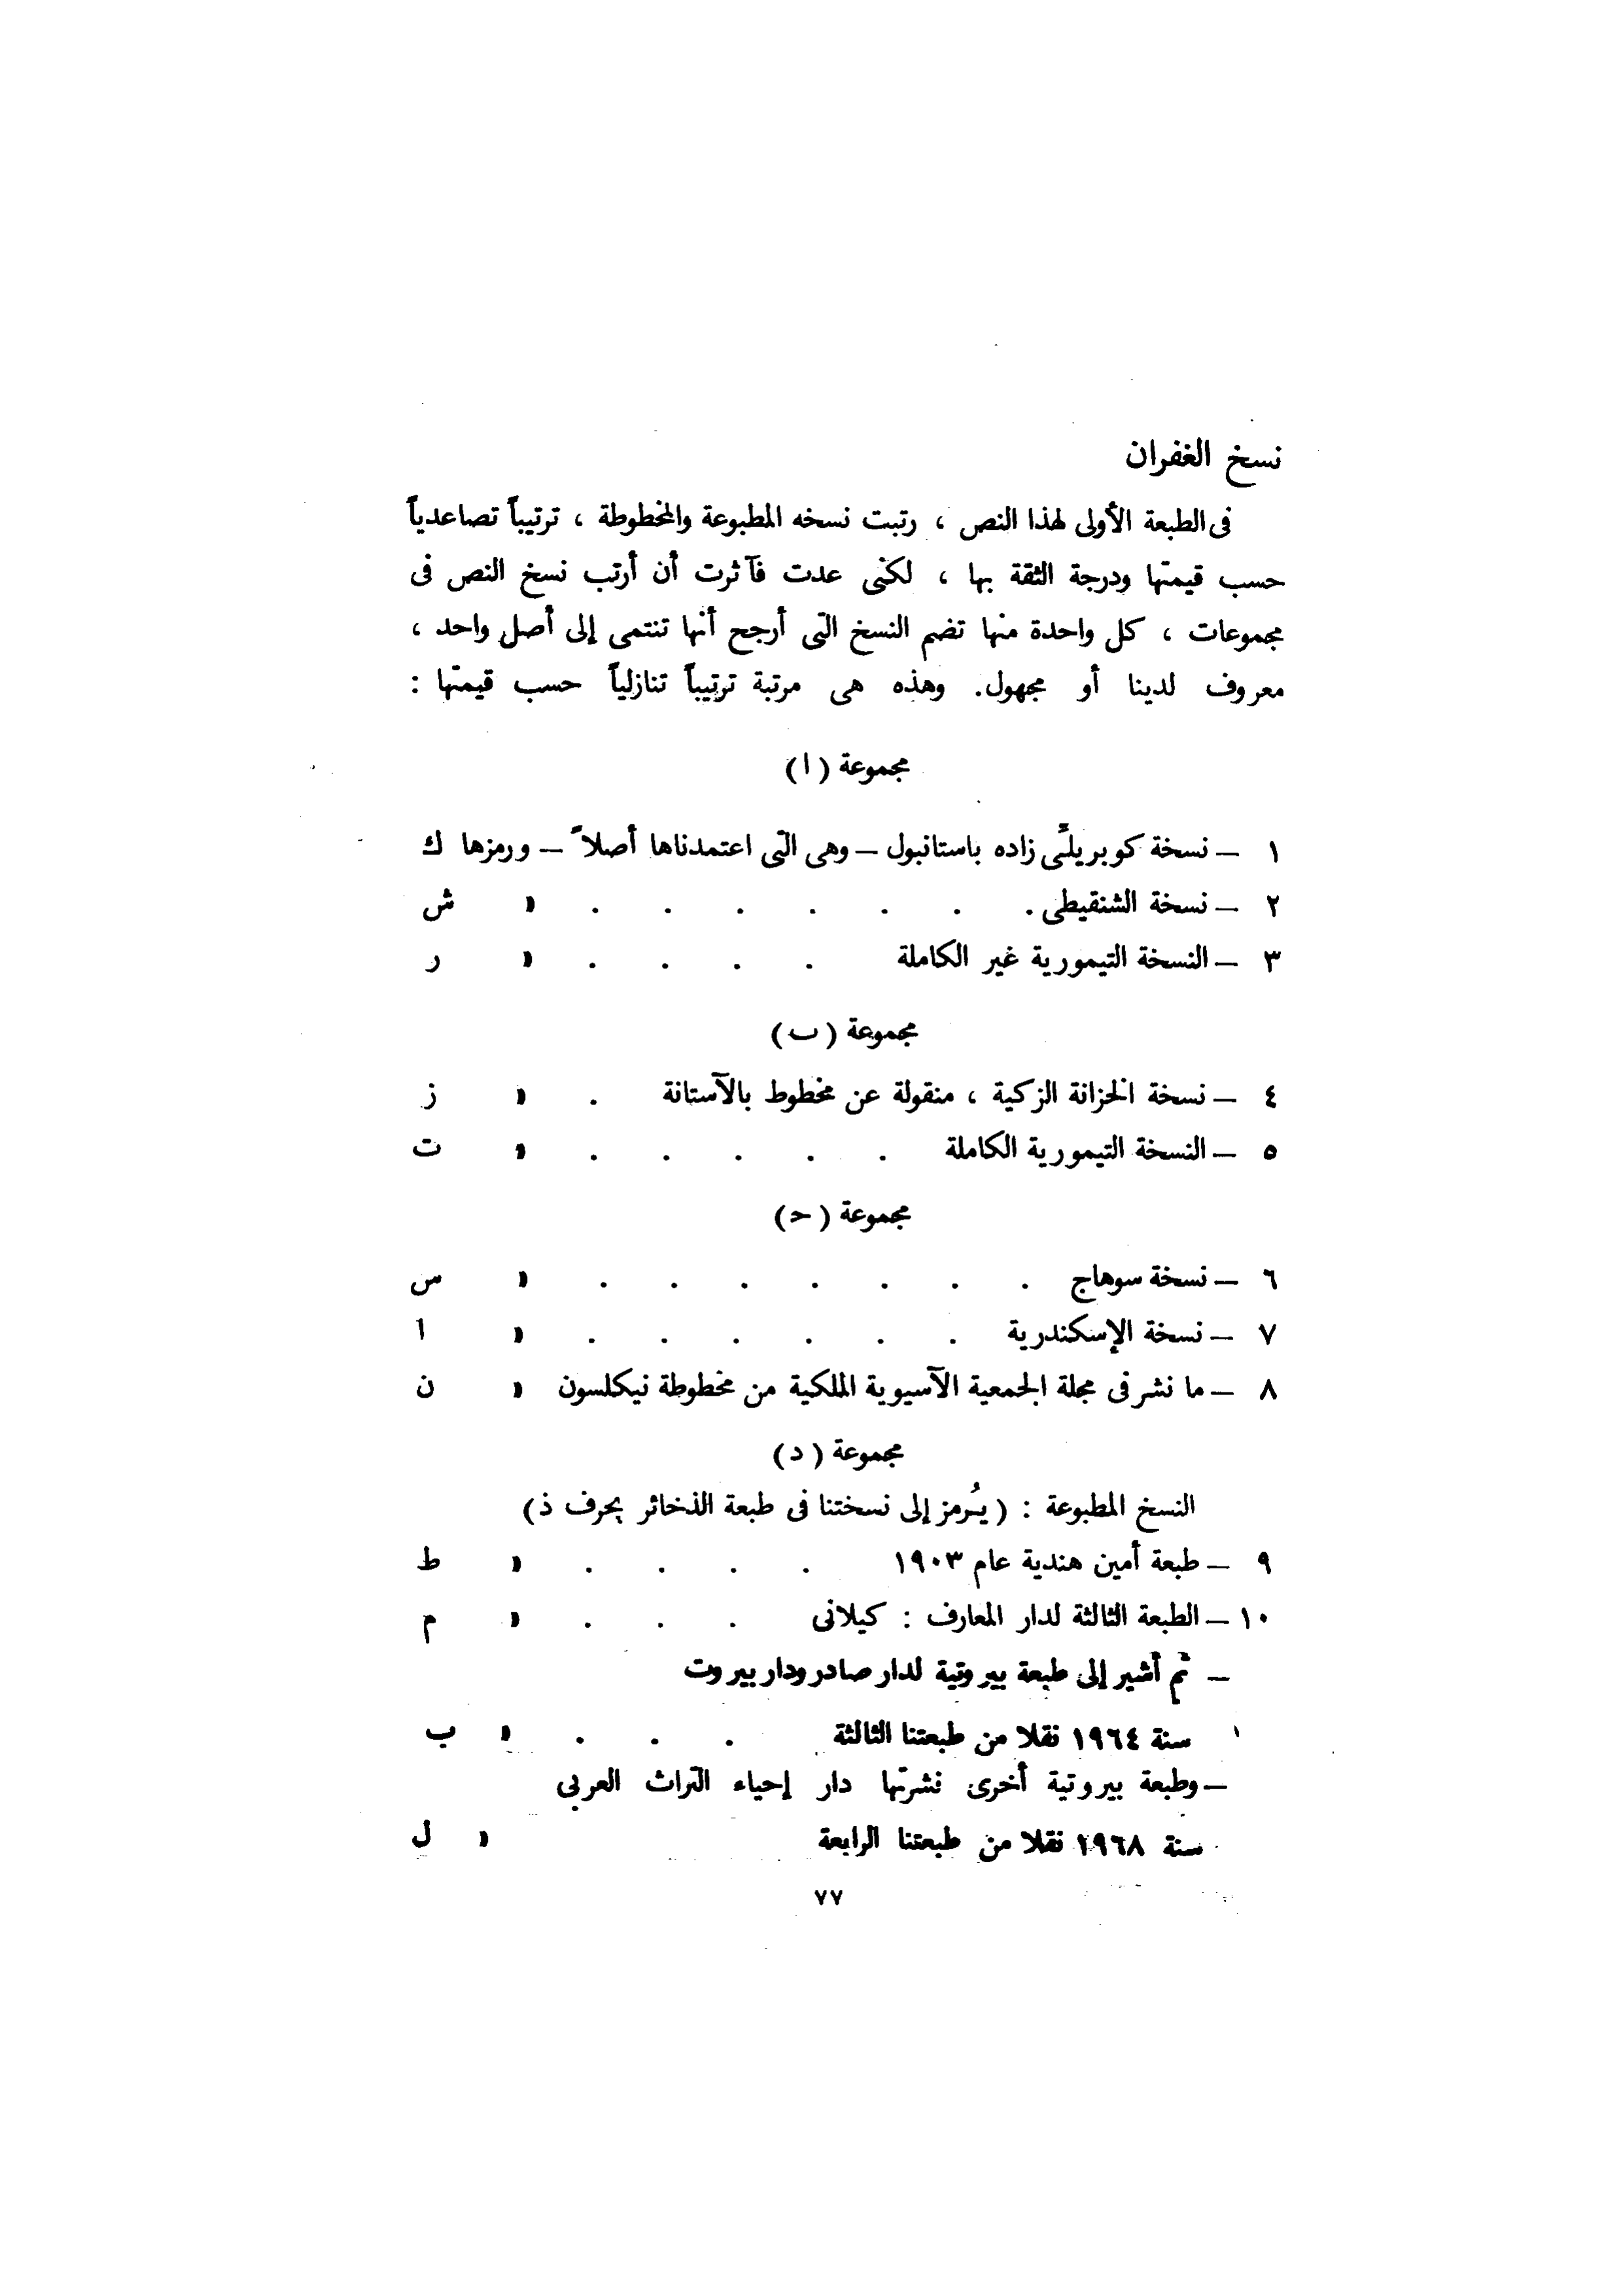 نسخ الغفران
فى الطبعة الأولى لهذا النص ، رتبت نسخه المطبوعة والمخطوطة ، ترتيباً تصاعدياً
حسب قيمتها ودرجة الثقة بها ، لكنى عدت فآثرت أن أرتب نسخ النص فى
مجموعات ، كل واحدة منها تضم النسخ التى أرجح أنها تنتمى إلى أصل واحد ،
معروف لدينا أو مجهول. وهذه هى مرتبة ترتيباً تنازلياً حسب قيمتها :
مجموعة ( ا )
١ — نسخة كوبريلًى زاده باستانبول — وهى التى اعتمدناها أصلاً — ورمزها ك
٢ — نسخة الشنقيطى . . . . . . . » ش
٣ — النسخة التيمورية غير الكاملة . . . . » ر
مجموعة ( ب )
٤ — نسخة الخزانة الزكية ، منقولة عن مخطوط بالآستانة . » ز
٥ — النسخة التيمورية الكاملة . . . . . » ت
مجموعة ( ح )
٦ — نسخة سوهاج . . . . . . . » س
٧ — نسخة الإسكندرية . . . . . . » ا
٨ — ما نشر فى مجلة الجمعية الآسيوية الملكية من مخطوطة نيكلسون » ن
مجموعة ( د )
النسخ المطبوعة : ( يُرمز إلى نسختنا فى طبعة الذخائر بحرف ذ )
٩ — طبعة أمين هندية عام ١٩٠٣ . . . . » ط
١٠ — الطبعة الثالثة لدار المعارف : كيلانى . . . » م
— ثم أشير إلى طبعة بيروتية لدار صادر ودار بيروت
سنة ١٩٦٤ نقلا من طبعتنا الثالثة . . . » ب
— وطبعة بيروتية أخرى نشرتها دار إحياء التراث العربى
سنة ١٩٦٨ نقلا من طبعتنا الرابعة » ل
٧٧